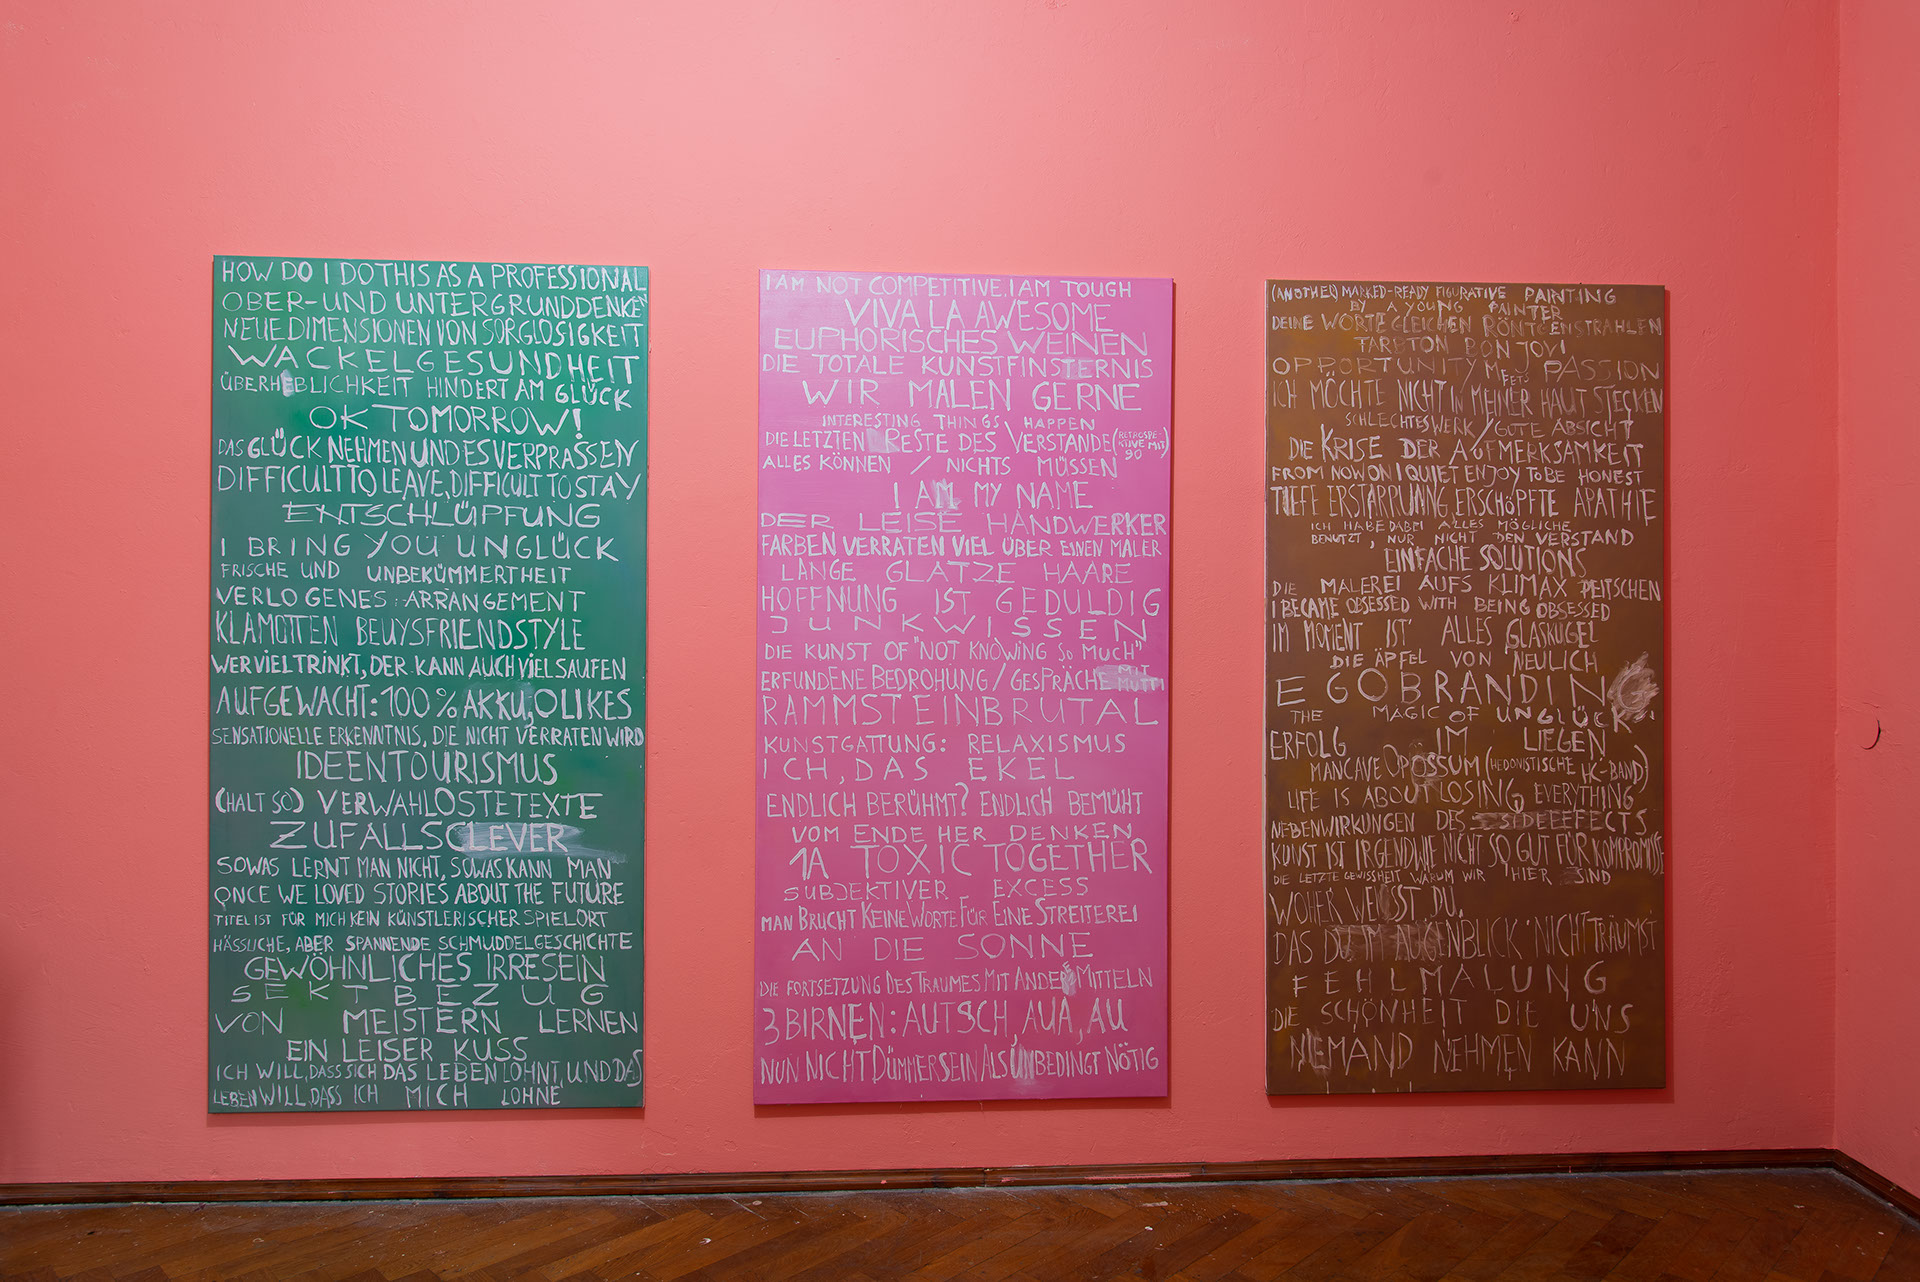 HOW DO I DO THIS AS A PROFESSIONAL
OBER- UND UNTERGRUNDDENKEN
NEUE DIMENSIONEN VON SORGLOSIGKEIT
WACKELGESUNDHEIT
ÜBERHEBLICHKEIT HINDERT AM GLÜCK
OK TOMORROW!
DAS GLÜCK NEHMEN UND ES VERPRASSEN
DIFFICULT TO LEAVE, DIFFICULT TO STAY
ENTSCHLÜPFUNG
I BRING YOU UNGLÜCK
FRISCHE UND UNBEKÜMMERTHEIT
VERLOGENES ARRANGEMENT
KLAMOTTEN BEUYSFRIENDSTYLE
WER VIEL TRINKT, DER KANN AUCH VIEL SAUFEN
AUFGEWACHT: 100% AKKU, 0 LIKES
SENSATIONELLE ERKENNTNIS, DIE NICHT VERRATEN WIRD
IDEENTOURISMUS
(HALT SO) VERWAHLOSTE TEXTE
ZUFALLSCLEVER
SOWAS LERNT MAN NICHT, SOWAS KANN MAN
ONCE WE LOVED STORIES ABOUT THE FUTURE
TITEL IST FÜR MICH KEIN KÜNSTLERISCHER SPIELORT
HÄSSLICHE, ABER SPANNENDE SCHMUDDELGESCHICHTE
GEWÖHNLICHES IRRESEIN
SEKTBEZUG
VON MEISTERN LERNEN
EIN LEISER KUSS
ICH WILL, DASS SICH DAS LEBEN LOHNT, UND DAS
LEBEN WILL, DASS ICH MICH LOHNE
I AM NOT COMPETITIVE, I AM TOUGH
VIVA LA AWESOME
EUPHORISCHES WEINEN
DIE TOTALE KUNSTFINSTERNIS
WIR MALEN GERNE
INTERESTING THINGS HAPPEN
DIE LETZTEN RESTE DES VERSTANDE (RETROSPEKTIVE MIT 90)
ALLES KÖNNEN / NICHTS MÜSSEN
I AM MY NAME
DER LEISE HANDWERKER
FARBEN VERRATEN VIEL ÜBER EINEN MALER
LANGE GLATZE HAARE
HOFFNUNG IST GEDULDIG
JUNKWISSEN
DIE KUNST OF "NOT KNOWING SO MUCH"
ERFUNDENE BEDROHUNG / GESPRÄCHE MIT MUTTI
RAMMSTEINBRUTAL
KUNSTGATTUNG: RELAXISMUS
ICH, DAS EKEL
ENDLICH BERÜHMT? ENDLICH BEMÜHT
VOM ENDE HER DENKEN
1A TOXIC TOGETHER
SUBJEKTIVER EXCESS
MAN BRUCHT KEINE WORTE FÜR EINE STREITEREI
AN DIE SONNE
DIE FORTSETZUNG DES TRAUMES MIT ANDERE MITTELN
3 BIRNEN: AUTSCH, AUA, AU
NUN NICHT DÜMMER SEIN ALS UNBEDINGT NÖTIG
(ANOTHER) MARKED-READY FIGURATIVE PAINTING
BY A YOUNG PAINTER
DEINE WORTE GLEICHEN RÖNTGENSTRAHLEN
FARBTON BON JOVI
OPPORTUNITY MEETS PASSION
ICH MÖCHTE NICHT IN MEINER HAUT STECKEN
SCHLECHTES WERK / GUTE ABSICHT
DIE KRISE DER AUFMERKSAMKEIT
FROM NOW ON I QUIET ENJOY TO BE HONEST
TIEFE ERSTARRUNNG, ERSCHÖPFTE APATHIE
ICH HABE DABEI ALLES MÖGLICHE
BENUTZT, NUR NICHT DEN VERSTAND
EINFACHE SOLUTIONS
DIE MALEREI AUFS KLIMAX PEITSCHEN
I BECAME OBSESSED WITH BEING OBSESSED
IM MOMENT IST ALLES GLASKUGEL
DIE ÄPFEL VON NEULICH
EGOBRANDING
THE MAGIC OF UNGLÜCK
ERFOLG IM LIEGEN
MANCAVE OPOSSUM (HEDONISTISCHE HC-BAND)
LIFE IS ABOUT LOSING EVERYTHING
NEBENWIRKUNGEN DES SIDEEFFECTS
KUNST IST IRGENDWIE NICHT SO GUT FÜR KOMPROMISSE
DIE LETZTE GEWISSHEIT WARUM WIR HIER SIND
WOHER WEISST DU,
DAS DU IM AUGENBLICK NICHT TRÄUMST
FEHLMALUNG
DIE SCHÖNHEIT DIE UNS
NIEMAND NEHMEN KANN